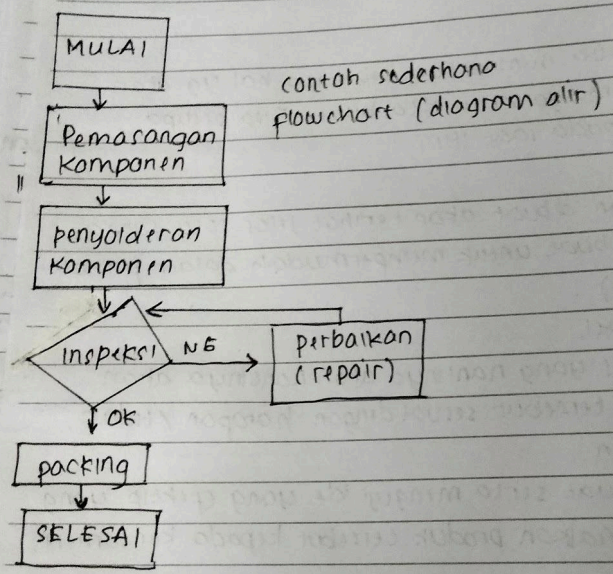 MULAI
contoh sederhana
flowchart (diagram alir)
Pemasangan
Komponen
penyolderan
Komponen
inspeksi
NE
perbaikan
(repair)
OK
packing
SELESAI